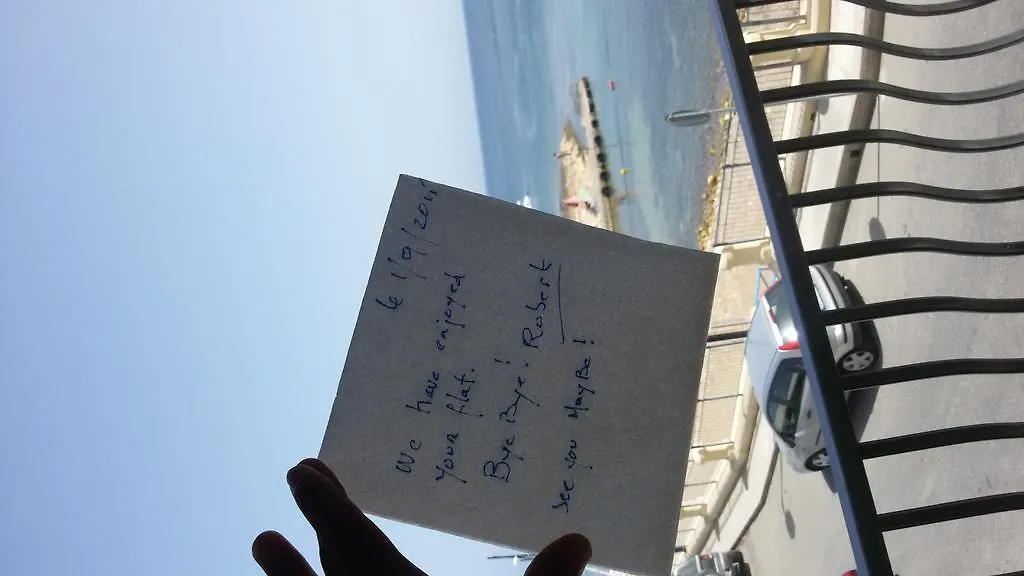 le 1/9/2015
We have enjoyed
your flat.
Bye Bye! Robert
See you MayBe!